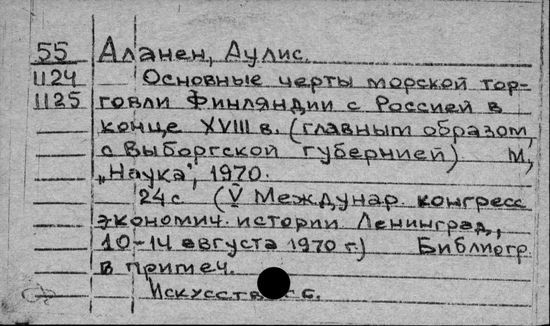 55 Аланен, Аулис.
1124 Основные черты морской тор-
1125 говли Финляндии с Россией в
конце XVIII в. (главным образом
с Выборгской губернией) М,
„Наука", 1970.
24с (V Междунар. конгресс
экономич. истории Ленинград,,
10-14 августа 1970 г.) Библиогр
в примеч.